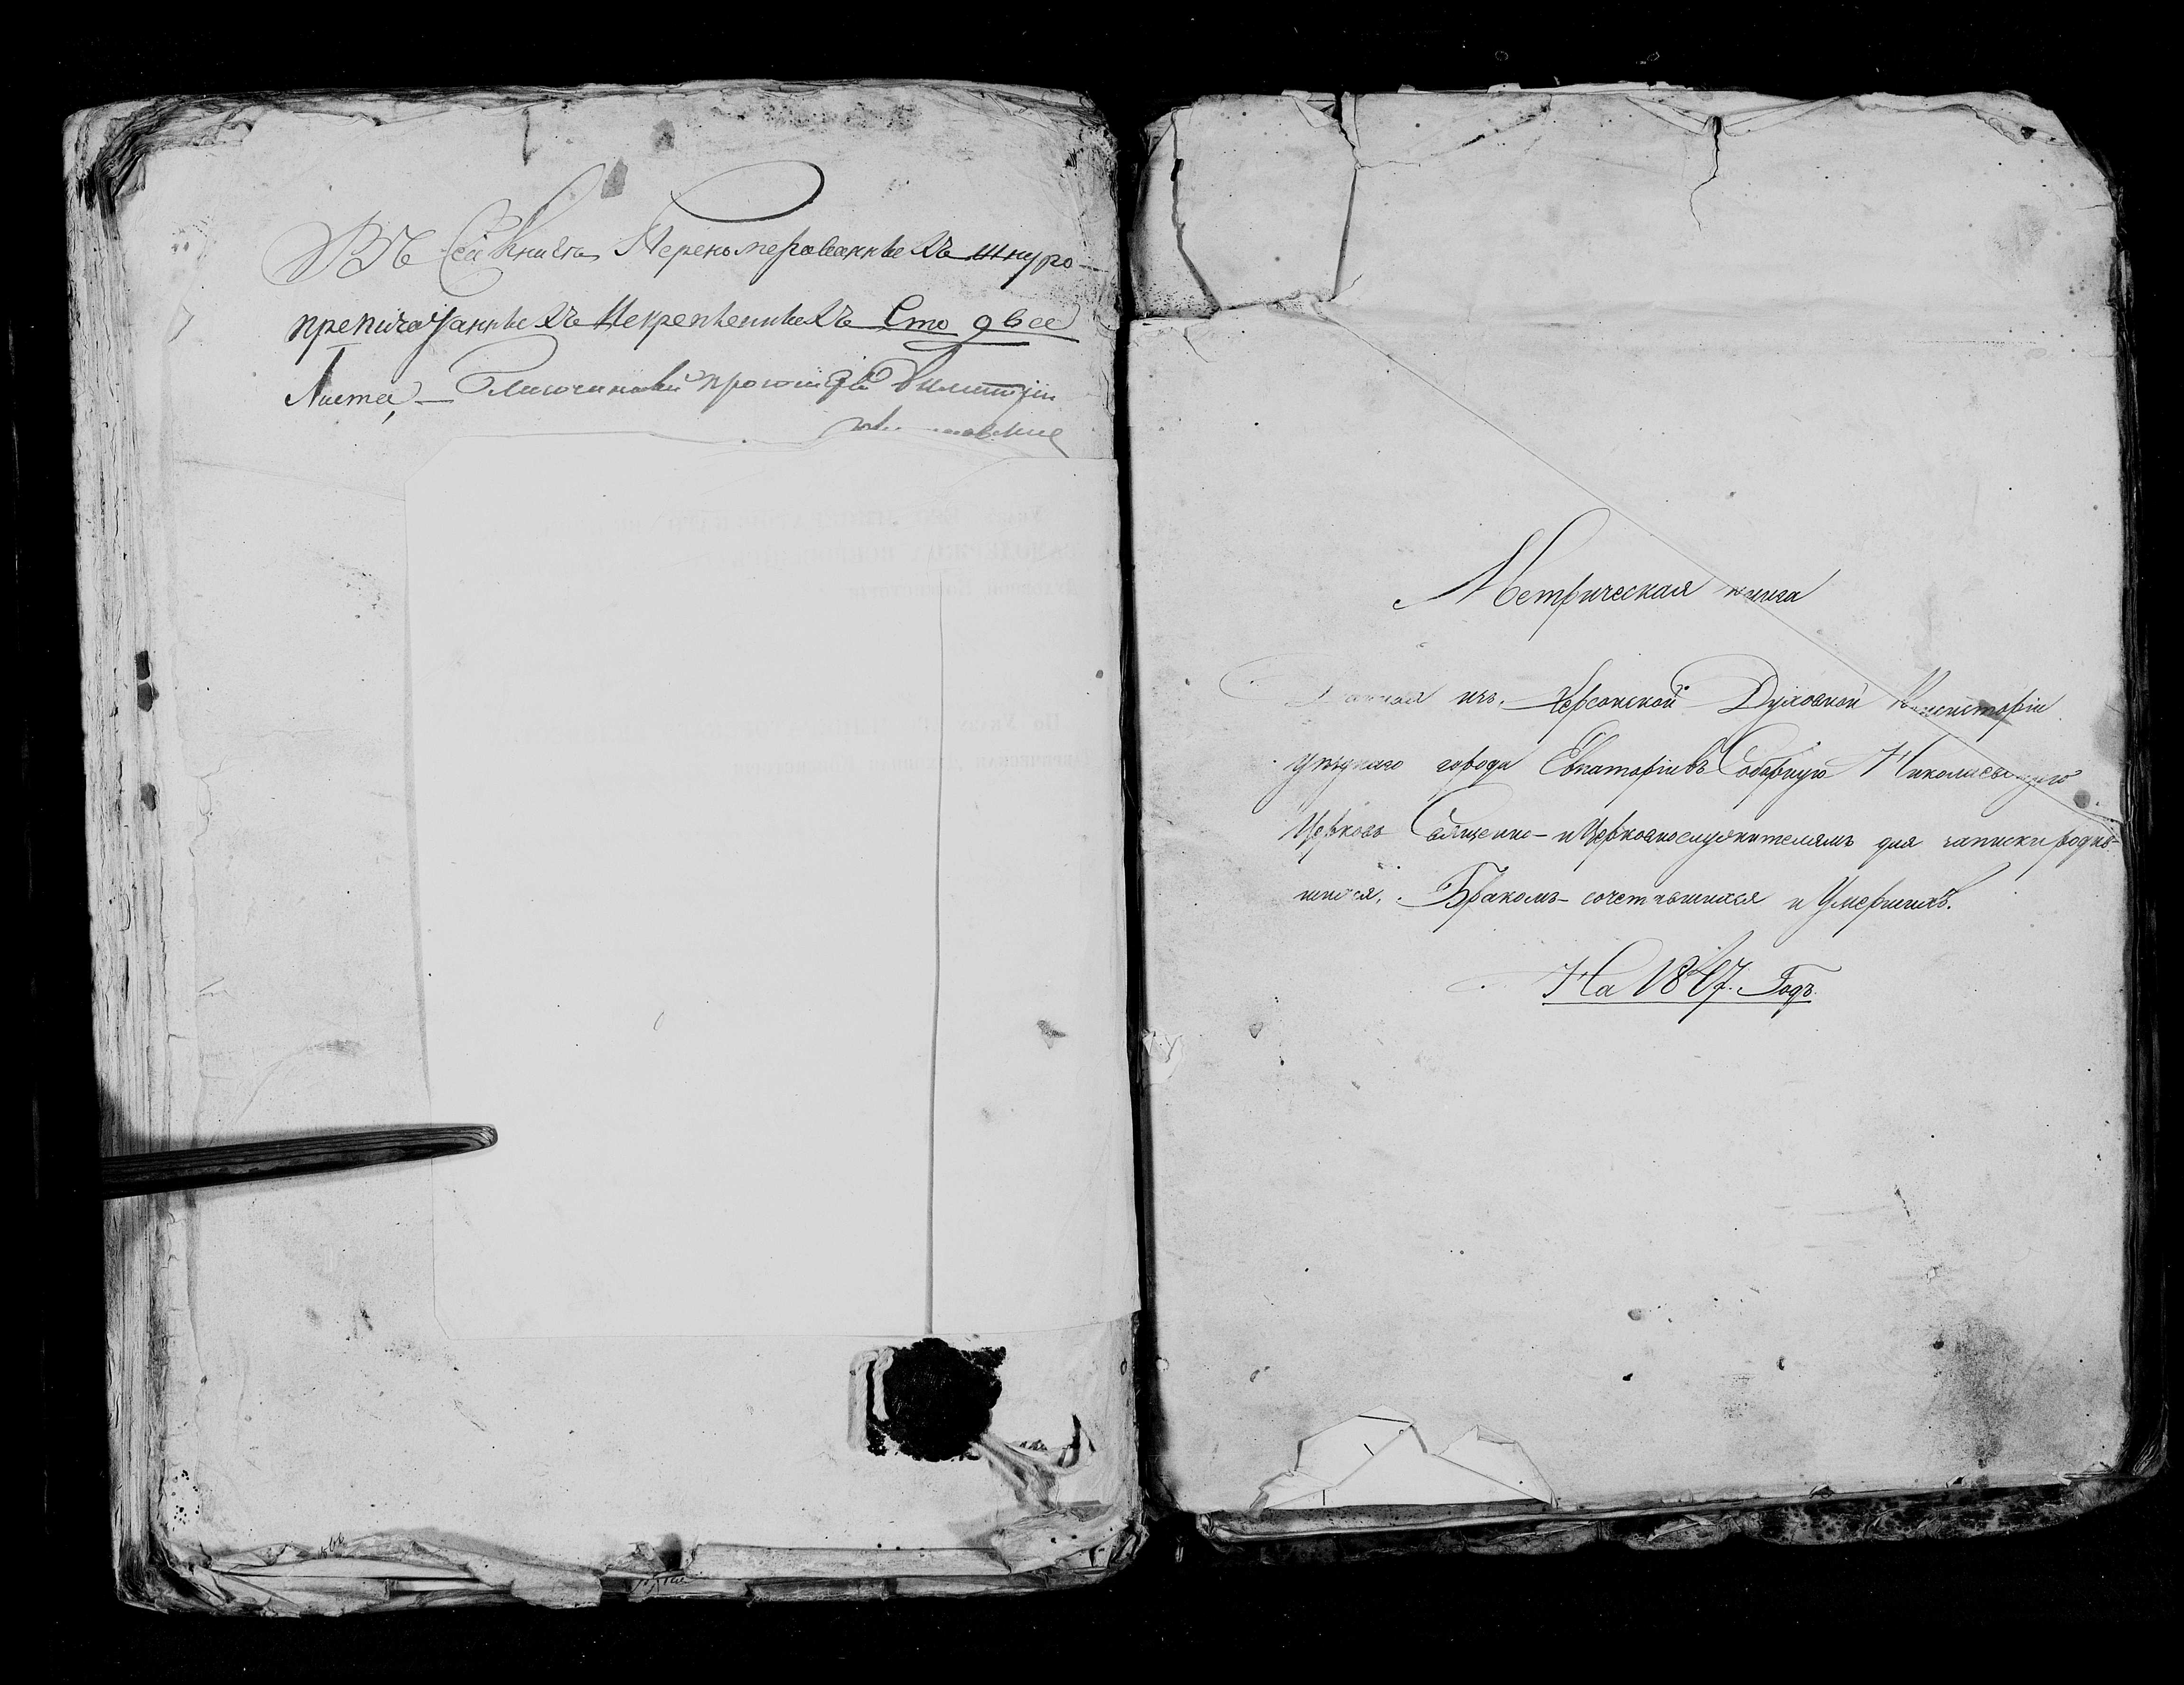 Въ Сей Книгѣ Перенумерованныхъ шнуро-
препичатанныхъ Искрепленныхъ Сто два
Листа,
Метрическая книга
Данная изъ Херсонской Духовной Консисторіи
уѣзднаго города Евпаторіи въ Соборную Николаевскую
Церковь Священно- и Церковнослужителямъ для записки родив-
шихся, Бракомъ-сочетавшихся и Умершихъ.
На 1847. Годъ.